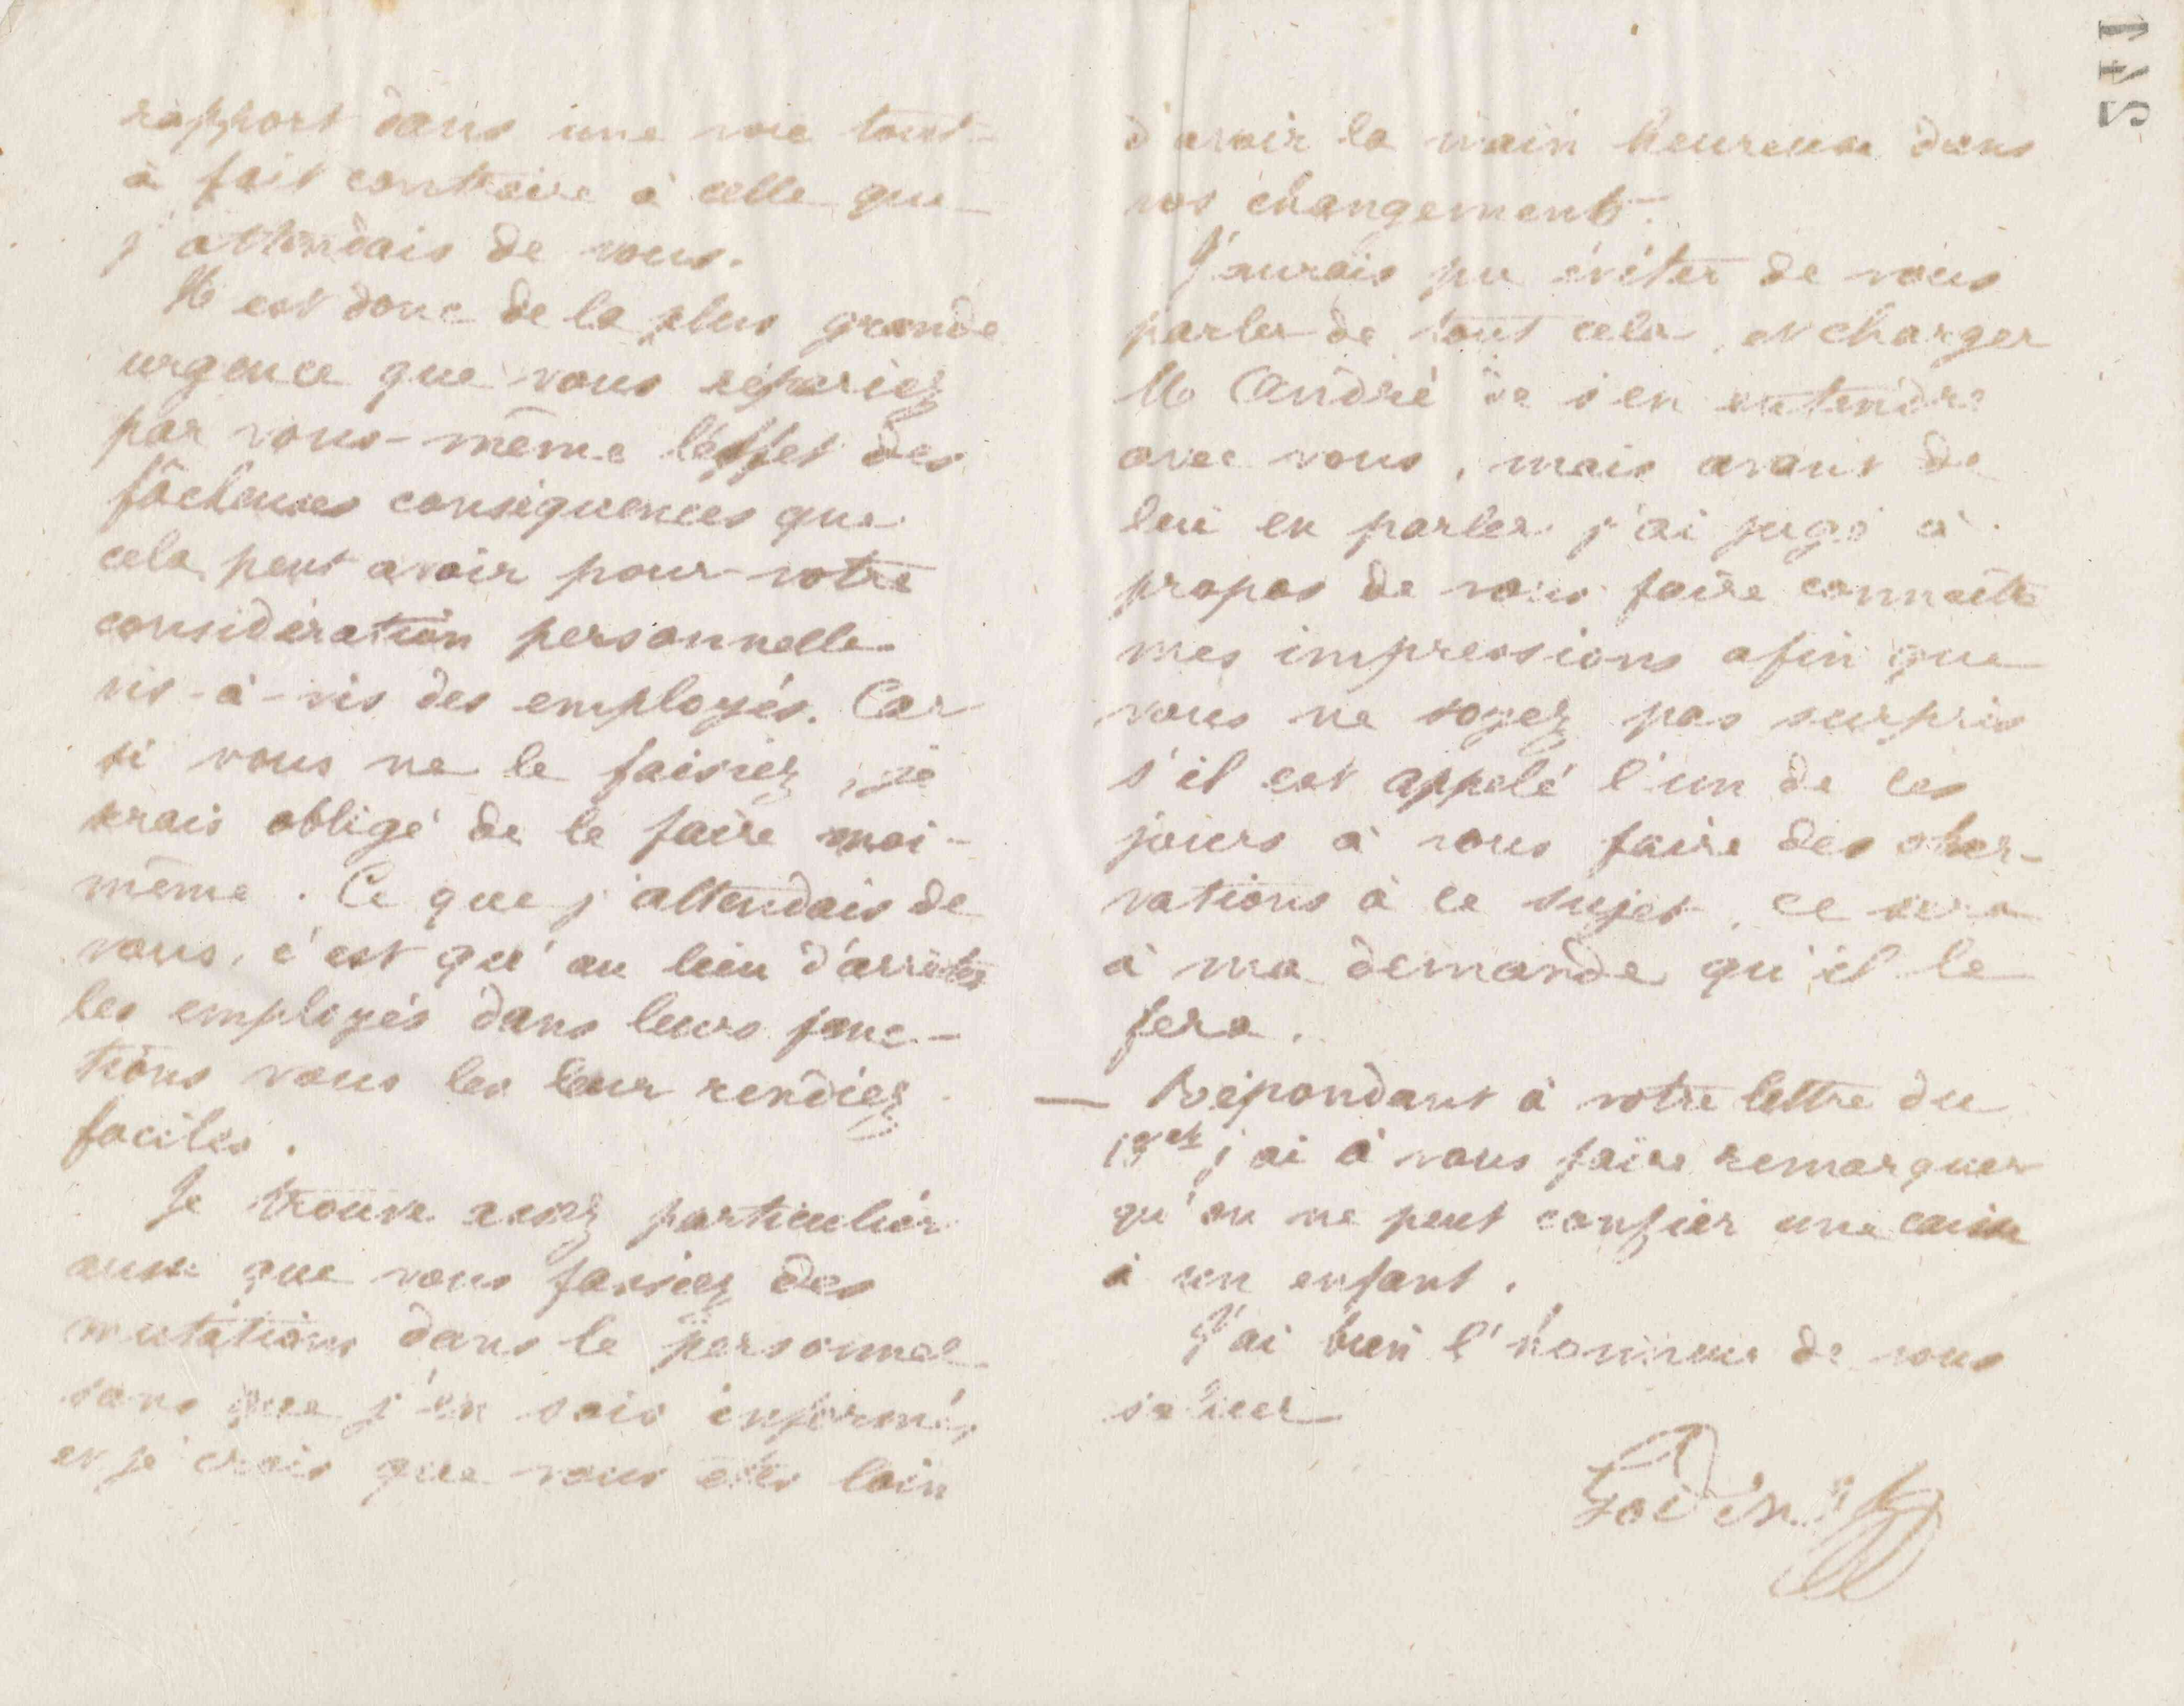 rapport dans une voie tout-
à fait contraire à celle que
j'attendais de vous.
Il est donc de la plus grande
urgence que vous répariez
par vous-même l'effet des
fâcheuses conséquences que
cela peut avoir pour votre
considération personnelle
vis-à-vis des employés. Car
si vous ne le faisiez, je
serais obligé de le faire moi-
même. Ce que j'attendais de
vous, c'est qu'au lieu d'arrêter
les employés dans leurs fonc-
tions vous les leur rendiez
faciles.
Je trouve assez particulier
aussi que vous fassiez des
mutations dans le personnel
sans que j'en sois informé,
et je crois que vous êtes loin
d'avoir la main heureuse dans
vos changements.
J'aurais pu éviter de vous
parler de tout cela, et charger
M. André de s'en entendre
avec vous, mais avant de
lui en parler j'ai jugé à
propos de vous faire connaître
mes impressions afin que
vous ne soyez pas surpris
s'il est appelé l'un de ces
jours à vous faire des obser-
vations à ce sujet, ce sera
à ma demande qu'il le
fera.
— Répondant à votre lettre du
13 j'ai à vous faire remarquer
qu'on ne peut confier une caisse
à un enfant.
J'ai bien l'honneur de vous
saluer
Godin